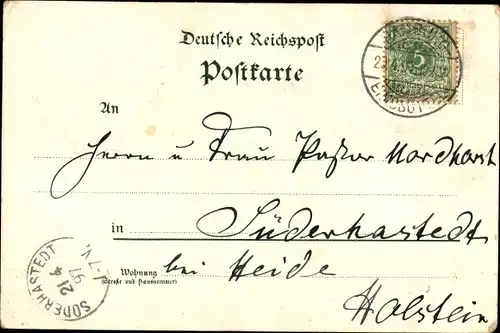 Deutsche Reichspost
Postkarte
An
Herrn u Frau Pastor Nordhorst
in Süderhastedt
Wohnung
(Straße und Hausnummer)
bei Heide
Holstein
5
SÜDERHASTEDT
21
4
97